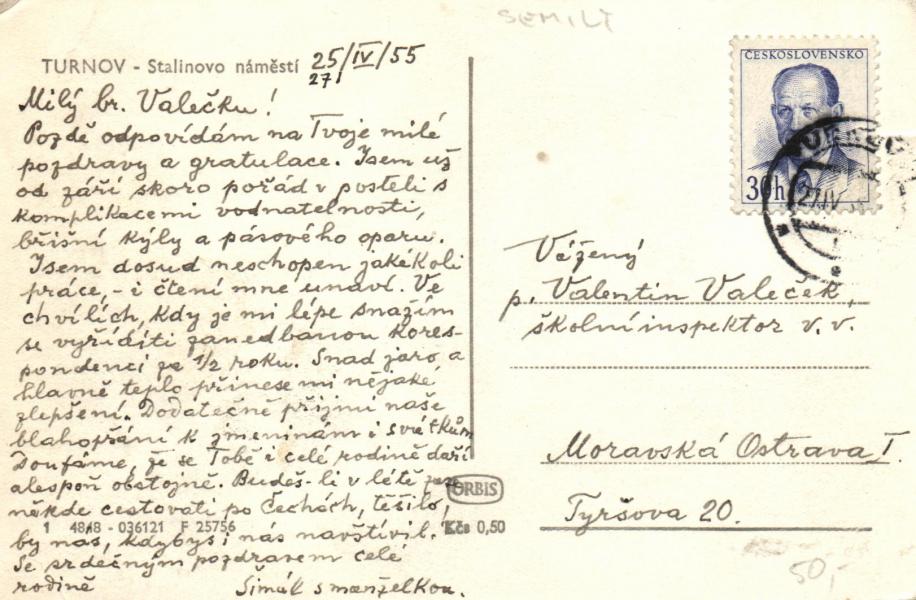 SEMILY
TURNOV - Stalinovo náměstí 25/IV/55
27/
Milý br. Valečku!
Pozdě odpovídám na Tvoje milé
pozdravy a gratulace. Jsem už
od září skoro pořád v posteli s
komplikacemi vodnatelnosti,
břišní kýly a pásového oparu.
Jsem dosud neschopen jakékoli
práce, - i čtení mne unaví. Ve
chvílích, kdy je mi lépe snažím
se vyříditi zanedbanou kores-
pondenci ze 1/2 roku. Snad jaro, a
hlavně teplo přinese mi nějaké
zlepšení. Dodatečně přijmi naše
blahopřání k jmeninám i svátkům
Doufáme, že se Tobě i celé rodině daří
alespoň obstojně. Budeš-li v létě
někde cestovati po Čechách, těšilo,
by nás, kdybys i nás navštívil.
Se srdečným pozdravem celé
rodině Šimák s manželkou.
1 48/8 - 036121 F 25756
ORBIS
Kčs 0,50
ČESKOSLOVENSKO
30h
27.IV
Vážený
p. Valentin Valeček,
školní inspektor v. v.
Moravská Ostrava I.
Tyršova 20.
50,-